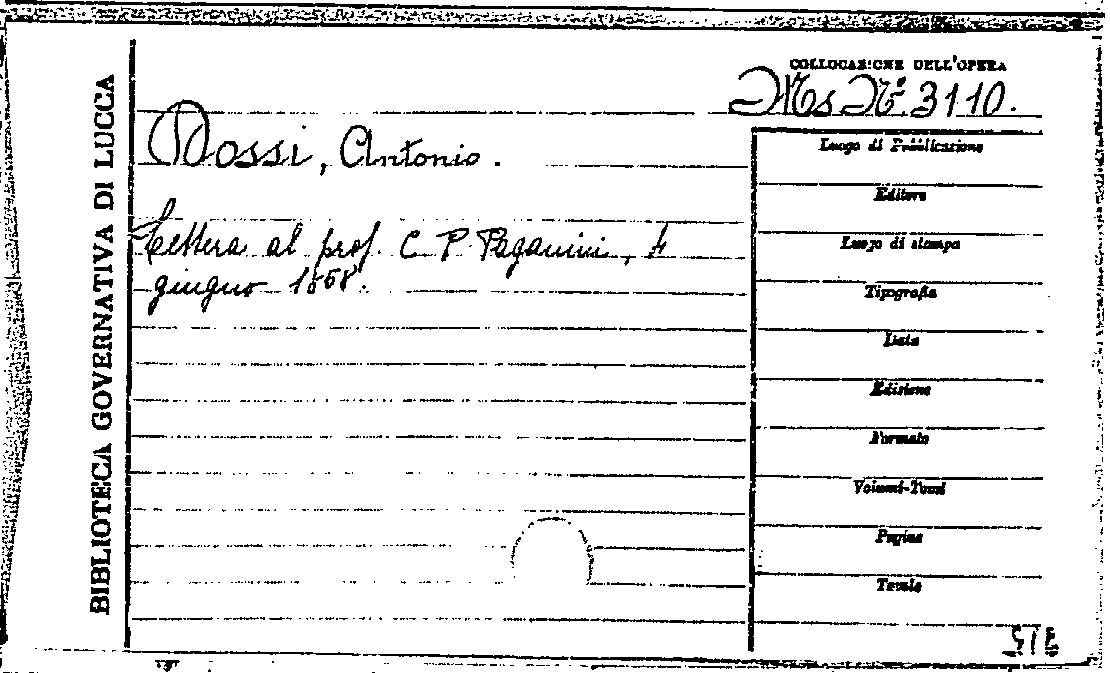 BIBLIOTECA GOVERNATIVA DI LUCCA
COLLOCAZIONE DELL'OPERA
Ms Nº. 3110.
Dossi, Antonio.
Lettera al prof. C. P. Paganini, 4
giugno 1868.
Luogo di Pubblicazione
Editore
Luogo di stampa
Tipografia
Data
Edizione
Formato
Volumi-Tomi
Pagine
Tavole